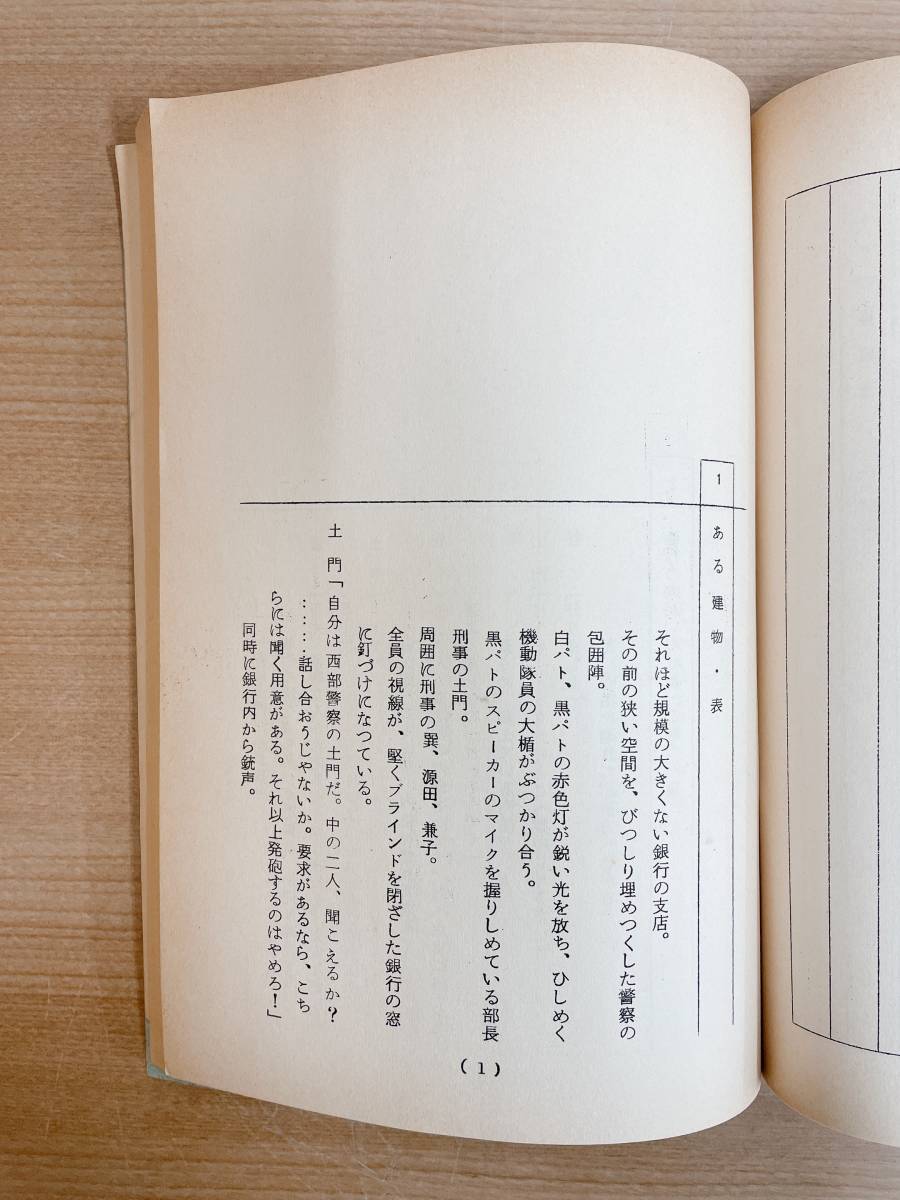 1 ある建物・表
それほど規模の大きくない銀行の支店。
その前の狭い空間を、びつしり埋めつくした警察の
包囲陣。
白パト、黒パトの赤色灯が鋭い光を放ち、ひしめく
機動隊員の大楯がぶつかり合う。
黒パトのスピーカーのマイクを握りしめている部長
刑事の土門。
周囲に刑事の巽、源田、兼子。
全員の視線が、堅くブラインドを閉ざした銀行の窓
に釘づけになつている。
土門「自分は西部警察の土門だ。中の二人、聞こえるか?
……話し合おうじゃないか。要求があるなら、こち
らには聞く用意がある。それ以上発砲するのはやめろ!」
同時に銀行内から銃声。
(1)